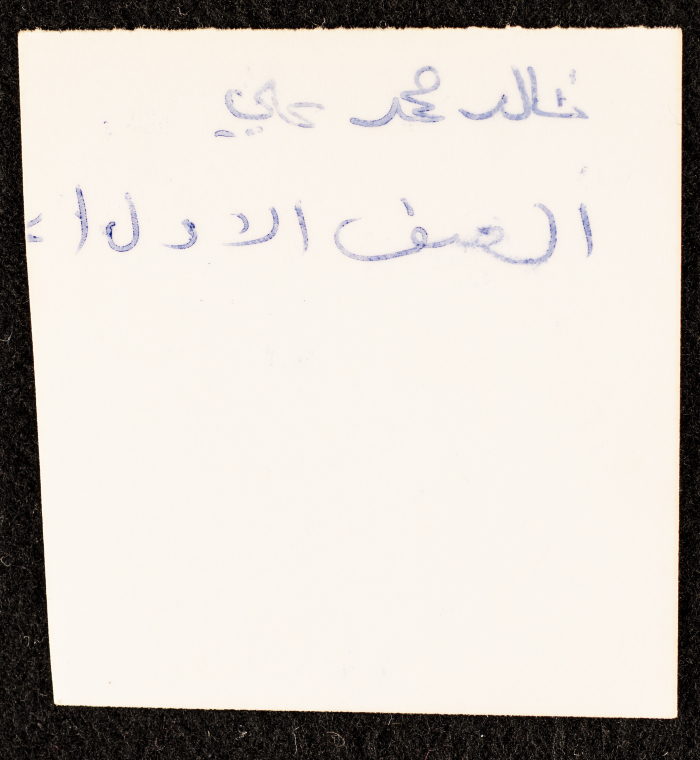 خالد محمد علي
الصف الاول ا